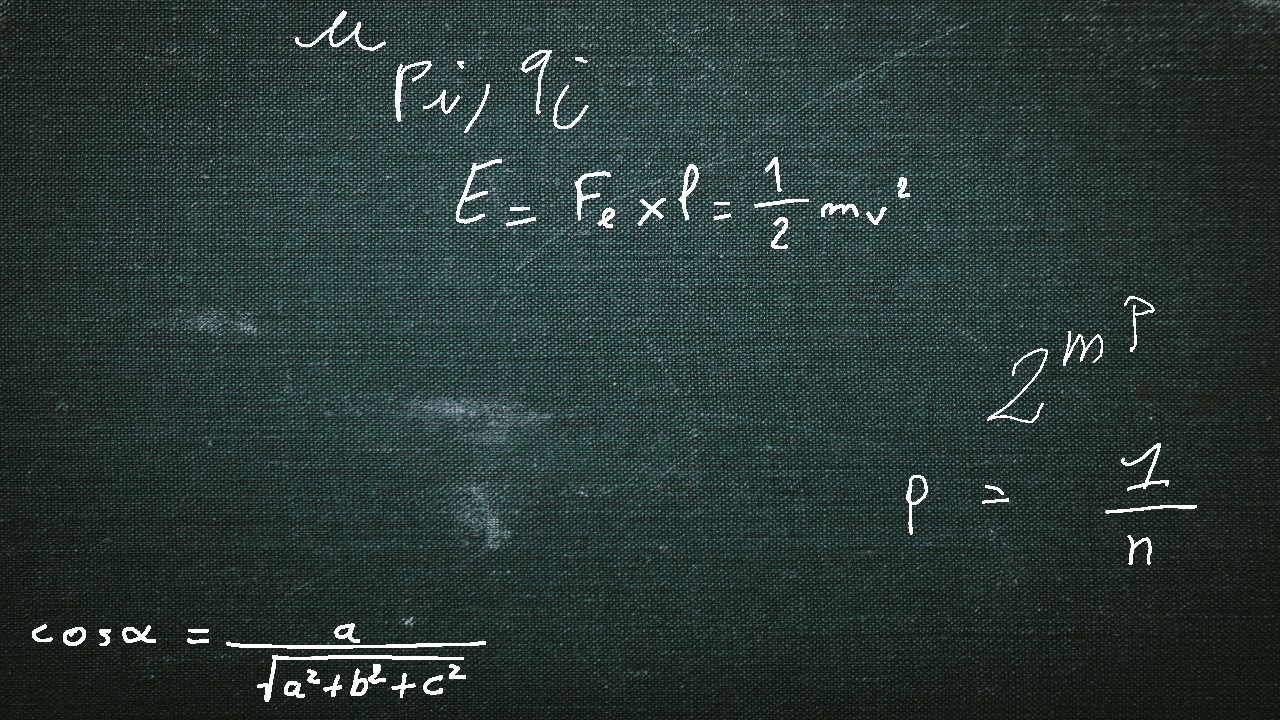 μ
p_i, q_i
E = F_e × l = \frac{1}{2} m v^2
2^{m^p}
p = \frac{1}{n}
cos α = \frac{a}{\sqrt{a^2+b^2+c^2}}